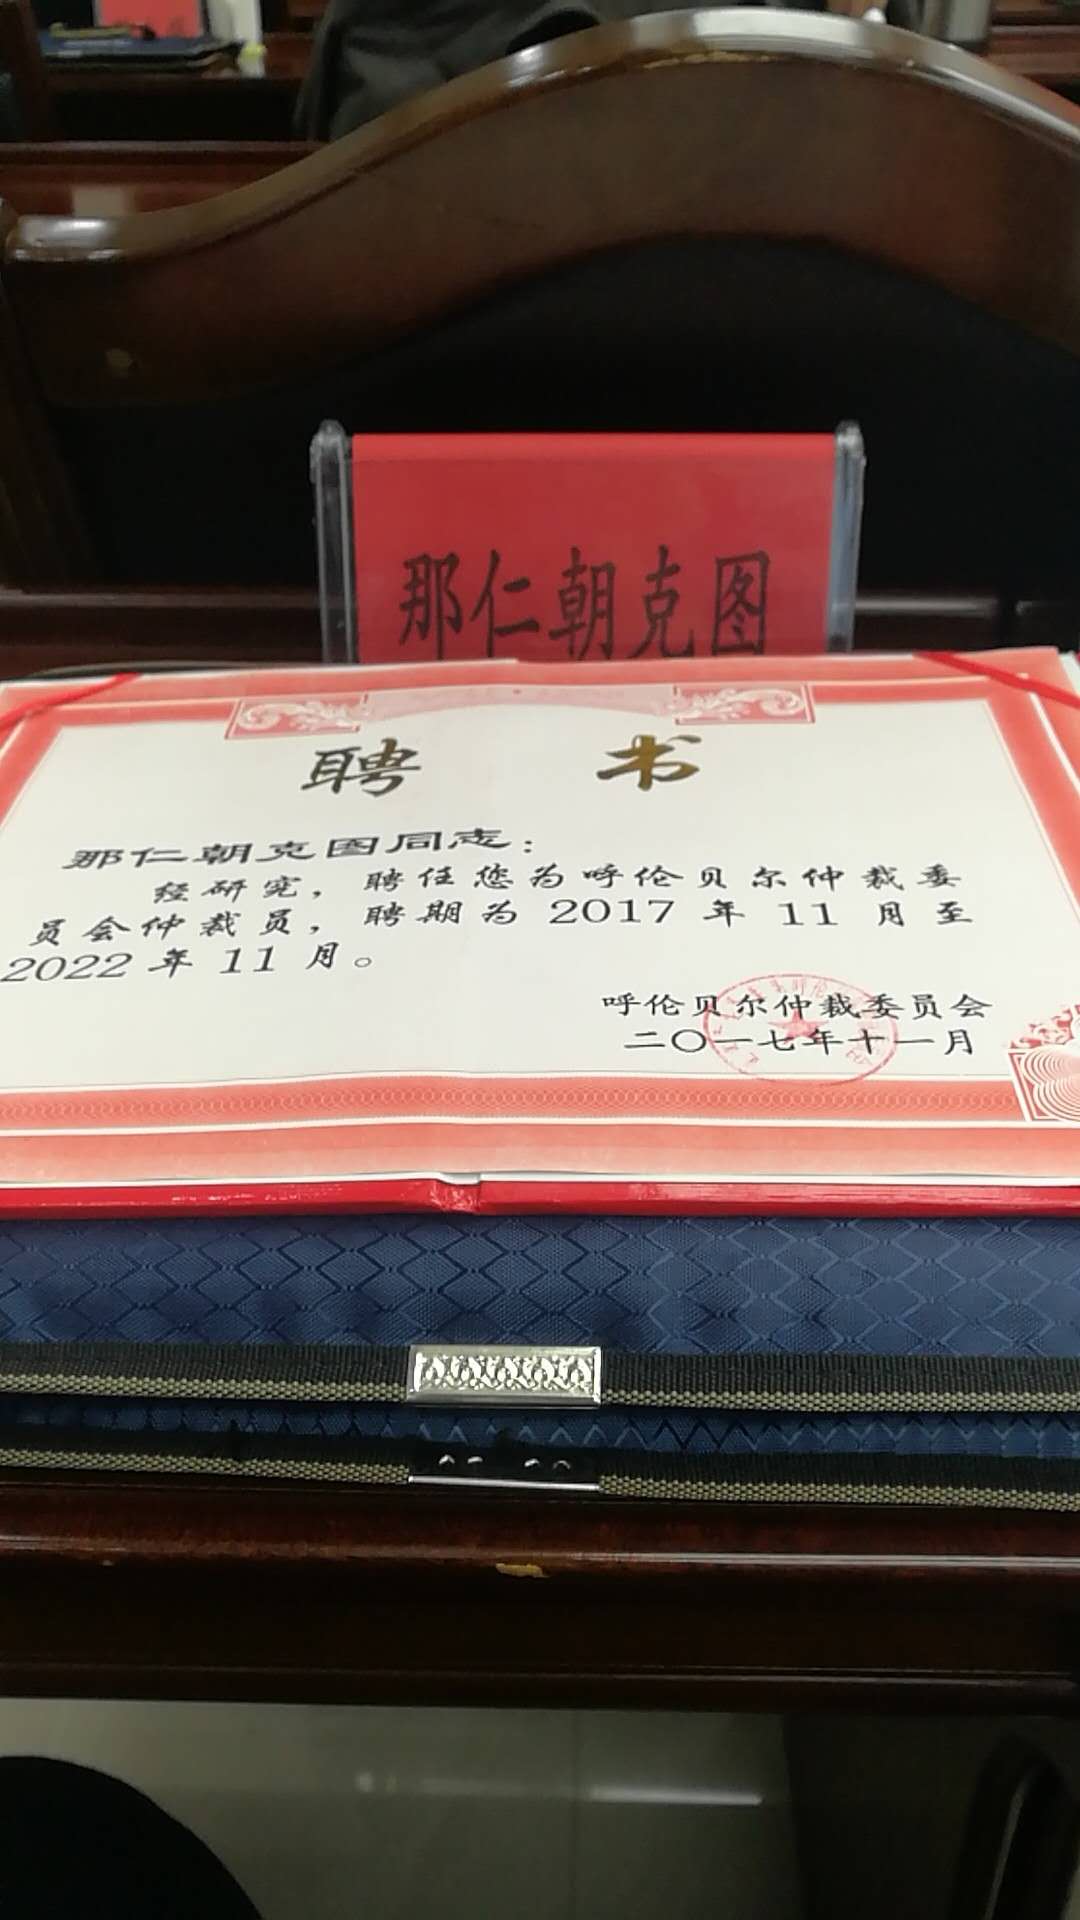 那仁朝克图
聘 书
那仁朝克图同志：
经研究，聘任您为呼伦贝尔仲裁委
员会仲裁员，聘期为 2017 年 11 月至
2022 年 11 月。
呼伦贝尔仲裁委员会
二〇一七年十一月